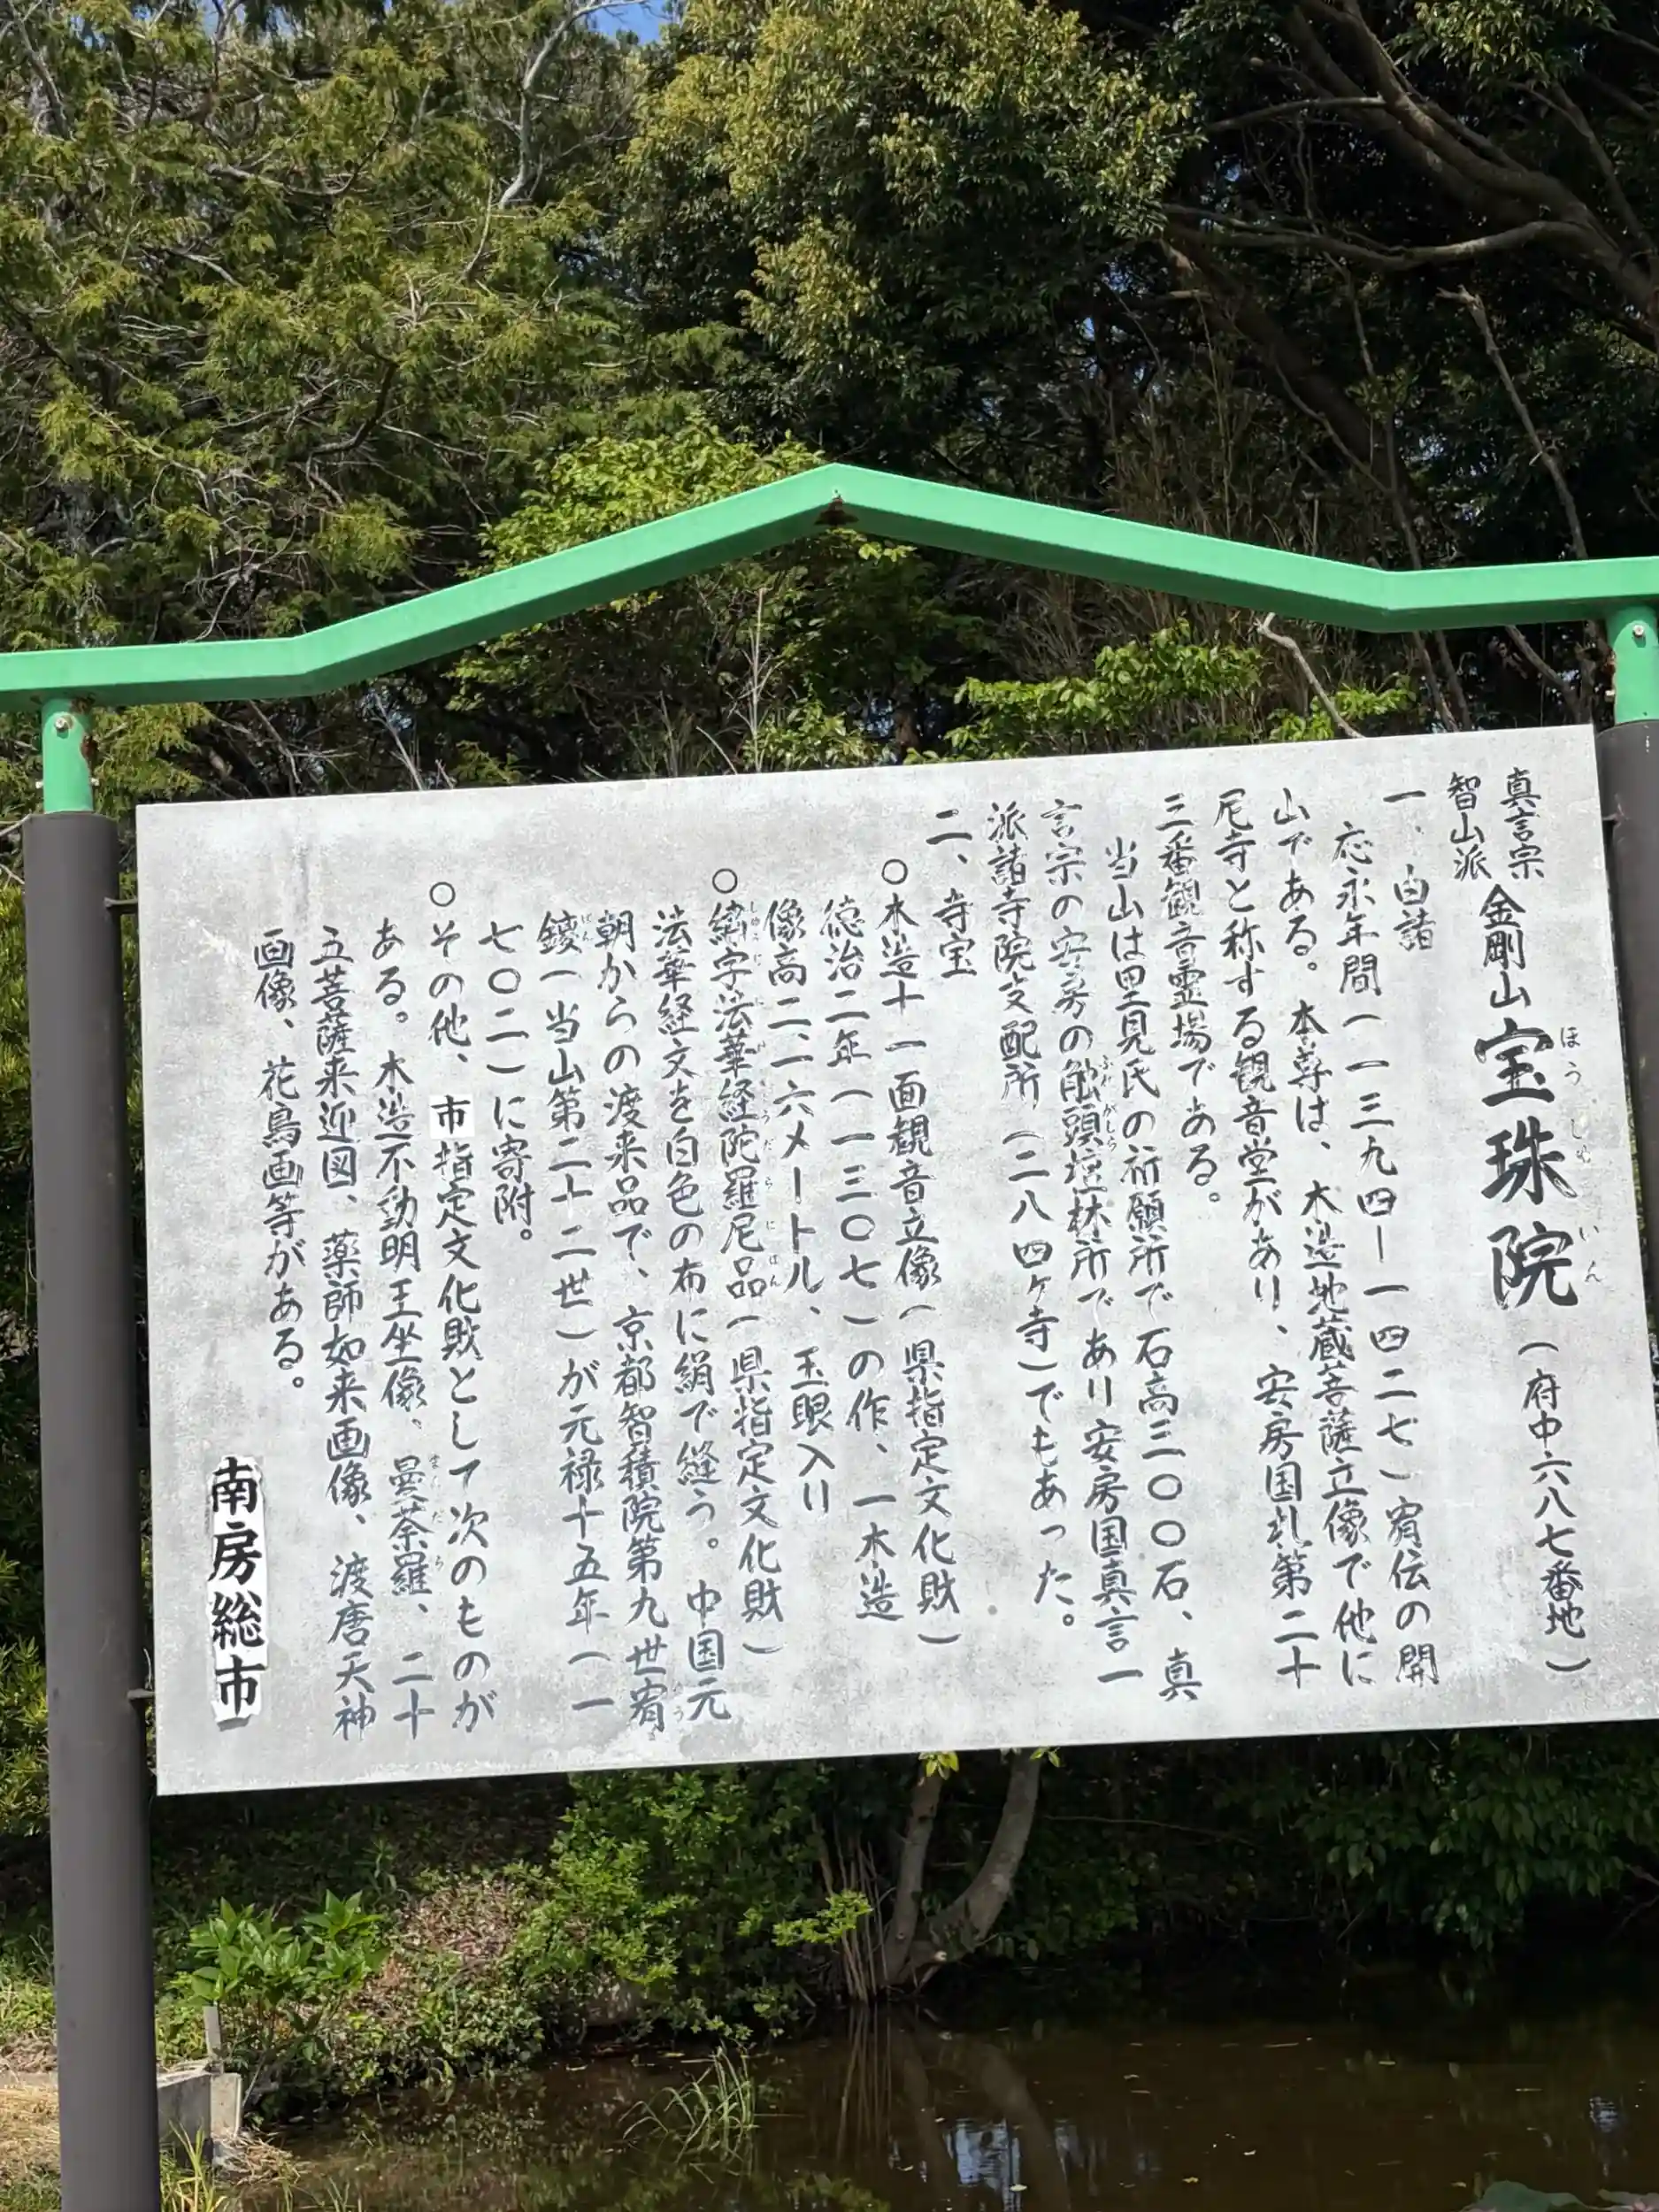 真言宗
智山派
金剛山 宝珠院（府中六八七番地）
ほうしゅいん
一、由諸
応永年間（一三九四ー一四二七）宥伝の開
山である。本尊は、木造地蔵菩薩立像で他に
尼寺と称する観音堂があり、安房国札第二十
三番観音霊場である。
当山は里見氏の祈願所で石高三〇〇石、真
言宗の安房の触頭壇林所であり安房国真言一
ふれがしら
派諸寺院支配所（二八四ヶ寺）でもあった。
二、寺宝
○木造十一面観音立像（県指定文化財）
徳治二年（一三〇七）の作、一木造
像高二、一六メートル、玉眼入り
○繍字法華経陀羅尼品（県指定文化財）
法華経文を白色の布に絹で縫う。中国元
朝からの渡来品で、京都智積院第九世宥
鑁（当山第二十二世）が元禄十五年（一
ばん
七〇二）に寄附。
○その他、市指定文化財として次のものが
ある。木造不動明王坐像、曼荼羅、二十
まんだら
五菩薩来迎図、薬師如来画像、渡唐天神
画像、花鳥画等がある。
南房総市